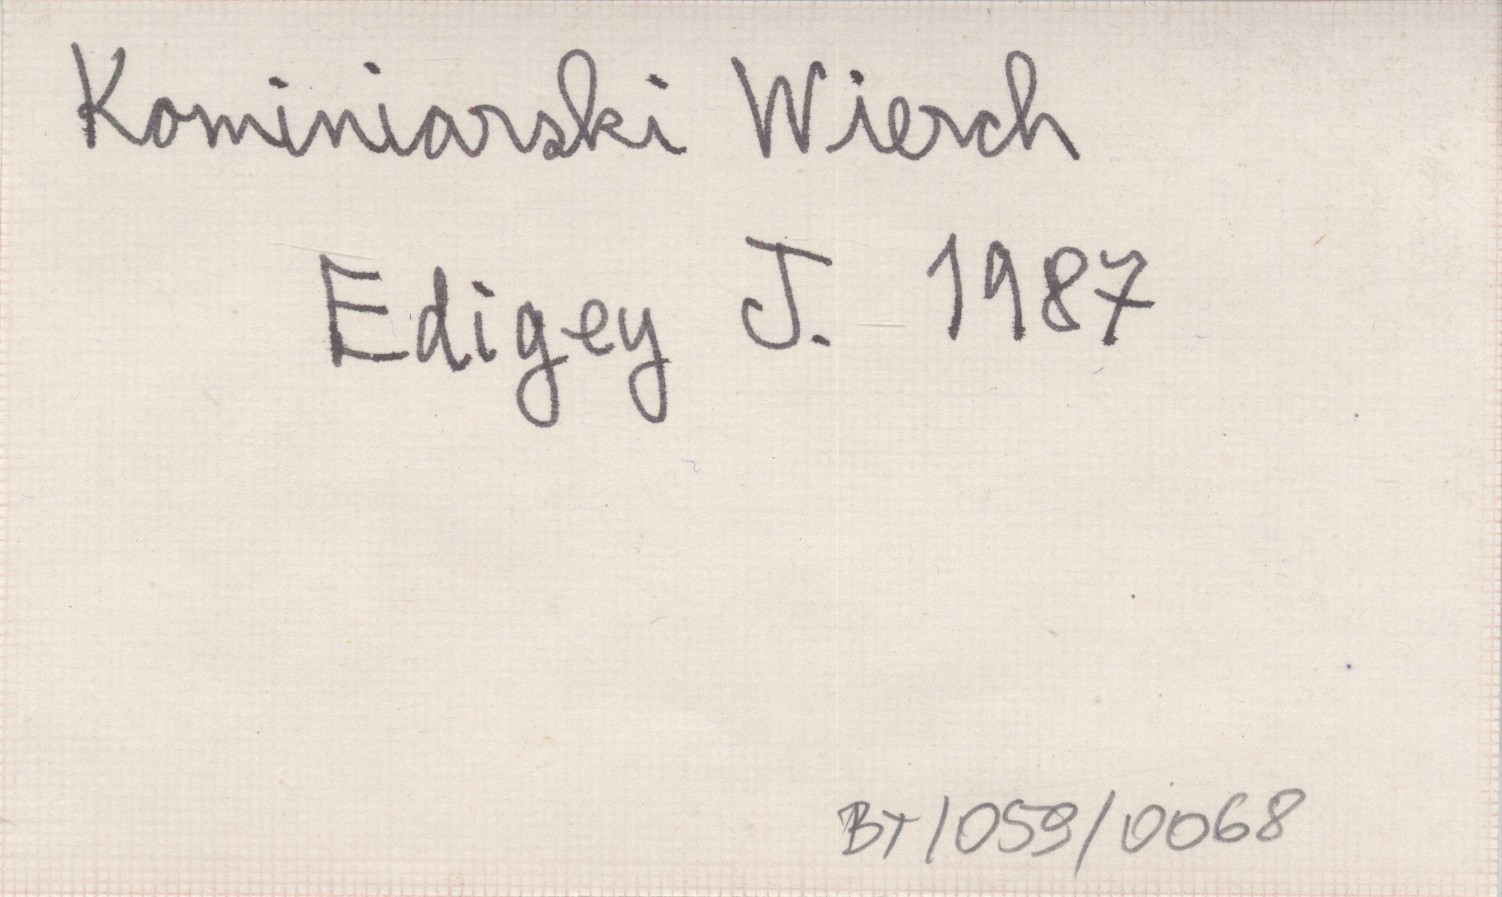 Kominiarski Wierch
Edigey J. 1987
BT/059/0068